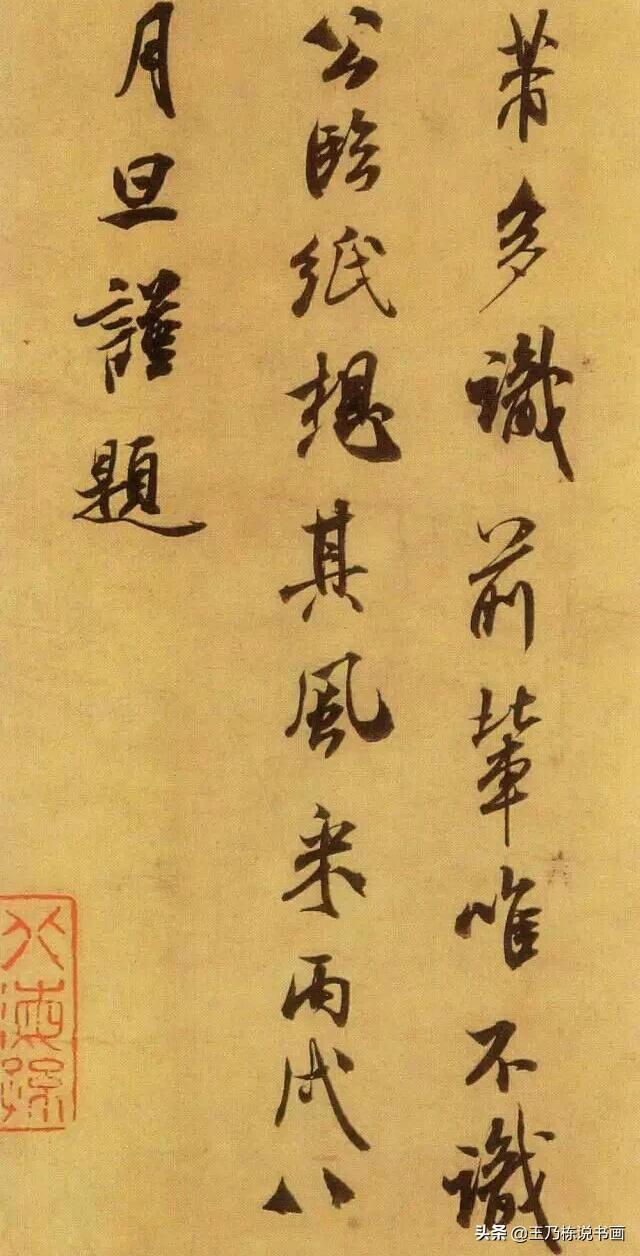 芾多識前輩唯不識
公臨紙想其風采丙戌八
月旦謹題
头条 @王乃栋说书画